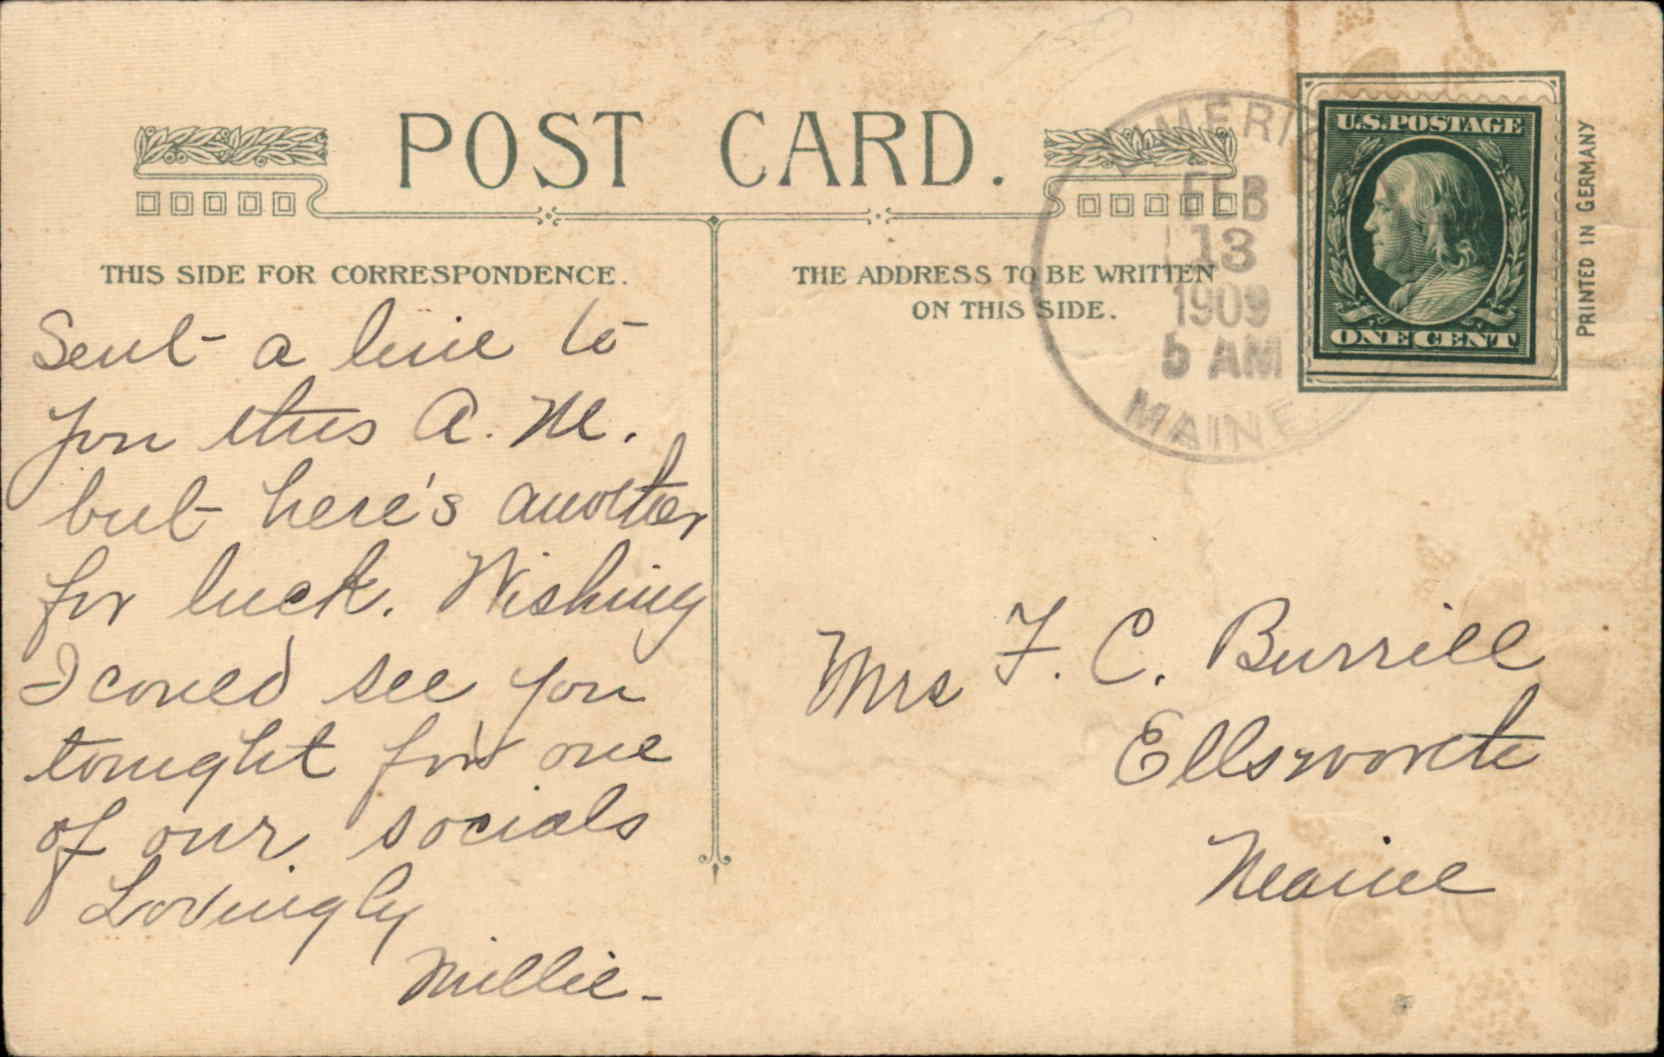 POST CARD.
THIS SIDE FOR CORRESPONDENCE.
Sent a line to
you this A. M.
but here's another
for luck. Wishing
I could see you
tonight for one
of our socials
Lovingly
Millie -
THE ADDRESS TO BE WRITTEN
ON THIS SIDE.
FEB
13
1909
5 AM
MAINE.
U.S. POSTAGE
ONE CENT
PRINTED IN GERMANY
Mrs F. C. Burrill
Ellsworth
Maine